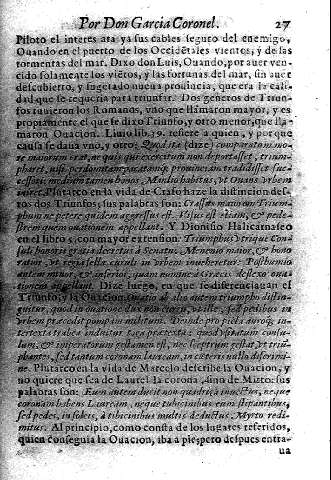 Por Don Garcia Coronel. 27
Piloto el interes ata ya sus cables seguro del enemigo,
Ouando en el puerto de los Occidẽtales vientos, y de las
tormentas del mar. Dixo don Luis, Ouando, por auer ven-
cido solamente los viẽtos, y las fortunas del mar, sin auer
descubierto, y sugetado nueua prouincia, que era la cali-
dad que se requeria para triunfar. Dos generos de Triun-
fos tuuieron los Romanos, vno que llamaron mayor, y es
propiamente el que se dixo Triunfo, y otro menor, que lla-
maron Ouacion. Liuio lib. 39. refiere a quien, y por que
causa se daua vno, y otro: Quod ita (dize) comparatum mo-
re maiorum erat, ne quis qui exercitum non deportasset, trium-
pharet, nisi perdomitam, pacatamque prouinciam tradidisset suc-
cessori: medium tamen honos, Modio habitus, vt Ouans vrbem
iniret. Plutarco en la vida de Craso haze la distincion des-
tos dos Triunfos, sus palabras son: Crassus maiorem Trium-
phum ne petere quidem aggressus est. Visus est etiam, & pe-
destrem quem ouationem appellant. Y Dionisio Halicarnaseo
en el libro 5. con mayor extension: Triumphus vtrique Con-
suli honoris gratia decretus à Senatu, Menenio maior, & hono-
ratior, vt regia sella curuli in vrbem inueheretur: Posthumio
autem minor, & inferior, quam nomine à Græcis deflexo oua-
tionem appellant. Dize luego, en que se diferenciauan el
Triunfo, y la Ouacion. Ouatio ab alio autem triumpho distin-
guitur, quod in ouatione dux non curru, vt ille, sed pedibus in
vrbem præcedit pompam militum. Deinde pro picta auroque
prætexta toga amicitur, quod vsitatum consu-
lum, & imperatorum gestamen est, nec sceptrum gestat, vt triũ-
phantes, sed tantum coronam lauream, in cæteris nullo discrimi-
ne. Plutarco en la vida de Marcelo describe la Ouacion, y
no quiere que sea de Laurel la corona, sino de Mirto: sus
palabras son: Eum autem ducit non quadriga inuectus, neque
coronam habens Lauream, neque tubicinibus eum stepantibus,
sed pedes, in soleis, à tibicinibus multis deductus, Myrto redi-
mitus. Al principio, como consta de los lugares referidos,
quien conseguia la Ouacion, iba a pie, pero despues entra-
ua